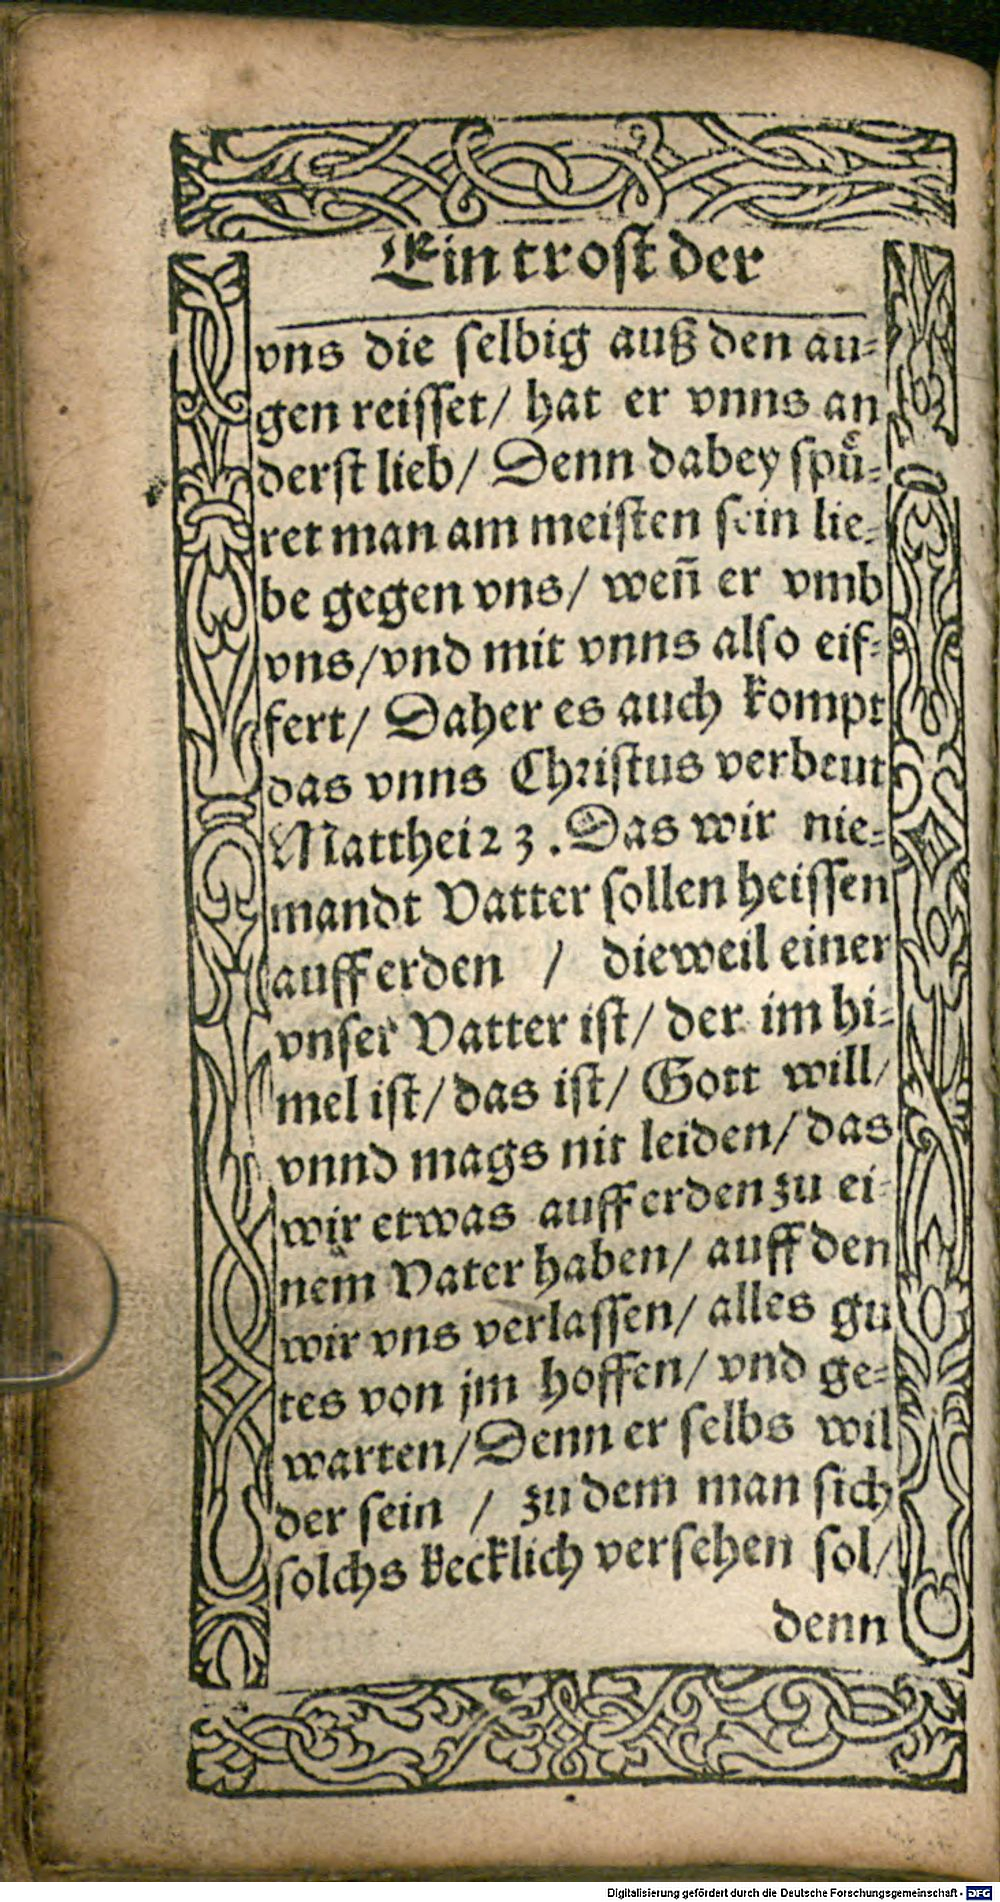 Ein trost der
vns die selbig auß den au-
gen reisset/ hat er vnns an
derst lieb/ Denn dabey spuͤ-
ret man am meisten sein lie-
be gegen vns/ weñ er vmb
vns/vnd mit vnns also eif-
fert/ Daher es auch kompt
das vnns Christus verbeut
Matthei 23. Das wir nie-
mandt Vatter sollen heissen
auff erden / dieweil einer
vnser Vatter ist/ der im hi-
mel ist/ das ist/ Gott will/
vnnd mags nit leiden/ das
wir etwas auff erden zu ei-
nem Vater haben/ auff den
wir vns verlassen/ alles gu
tes von jm hoffen/ vnd ge-
warten/ Denn er selbs wil
der sein / zu dem man sich
solchs kecklich versehen sol/
denn
Digitalisierung gefördert durch die Deutsche Forschungsgemeinschaft - DFG